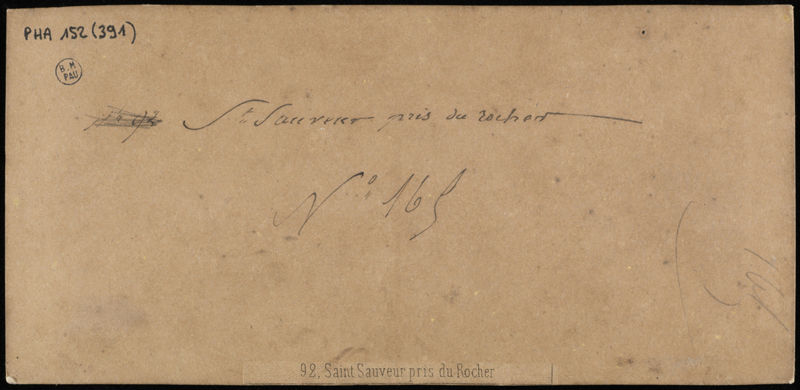 PHA 152 (391)
B. M
PAU
St Sauveur pris du rocher
No 165
92. Saint Sauveur pris du Rocher